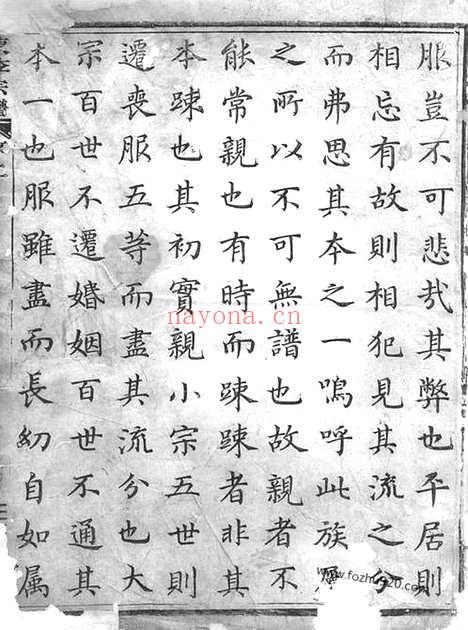 服豈不可悲哉其弊也平居則
相忘有故則相犯見其流之分
而弗思其本之一嗚呼此族
之所以不可無譜也故親者不
能常親也有時而踈踈者非其
本踈也其初實親小宗五世則
遷喪服五等而盡其流分也大
宗百世不遷婚姻百世不通其
本一也服雖盡而長幼自如属
nayona.cn
www.fozhu920.com